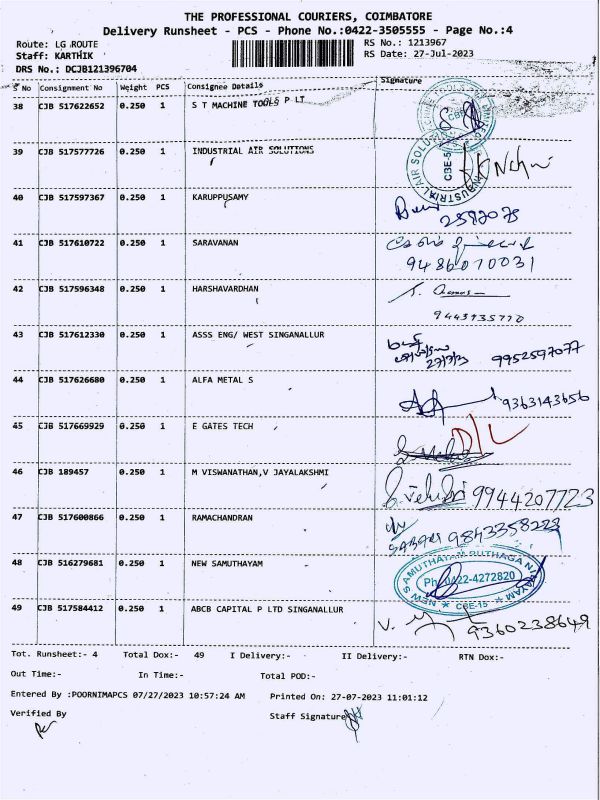 THE PROFESSIONAL COURIERS, COIMBATORE
Delivery Runsheet - PCS - Phone No.:0422-3505555 - Page No.:4
Route: LG ROUTE RS No.: 1213967
Staff: KARTHIK RS Date: 27-Jul-2023
DRS No.: DCJB121396704
S No Consignment No Weight PCS Consignee Details Signature
38 CJB 517622652 0.250 1 S T MACHINE TOOLS P LT
CBE
39 CJB 517577726 0.250 1 INDUSTRIAL AIR SOLUTIONS
INDUSTRIAL AIR SOLUTIONS CBE-5
40 CJB 517597367 0.250 1 KARUPPUSAMY
2592075
41 CJB 517610722 0.250 1 SARAVANAN
9486070031
42 CJB 517596348 0.250 1 HARSHAVARDHAN
9443735770
43 CJB 517612330 0.250 1 ASSS ENG/ WEST SINGANALLUR
27/7/23 9952597077
44 CJB 517626680 0.250 1 ALFA METAL S
9363143656
45 CJB 517669929 1 0.250 E GATES TECH
D/L
46 CJB 189457 0.250 1 M VISWANATHAN,V JAYALAKSHMI
9944207723
47 CJB 517600866 0.250 1 RAMACHANDRAN
SABARI 9843358223
48 CJB 516279681 0.250 1 NEW SAMUTHAYAM
Ph: 0422-4272820
CBE-15
49 CJB 517584412 0.250 1 ABCB CAPITAL P LTD SINGANALLUR
9360238649
Tot. Runsheet:- 4 Total Dox:- 49 I Delivery:- II Delivery:- RTN Dox:-
Out Time:- In Time:- Total POD:-
Entered By :POORNIMAPCS 07/27/2023 10:57:24 AM Printed On: 27-07-2023 11:01:12
Verified By Staff Signature